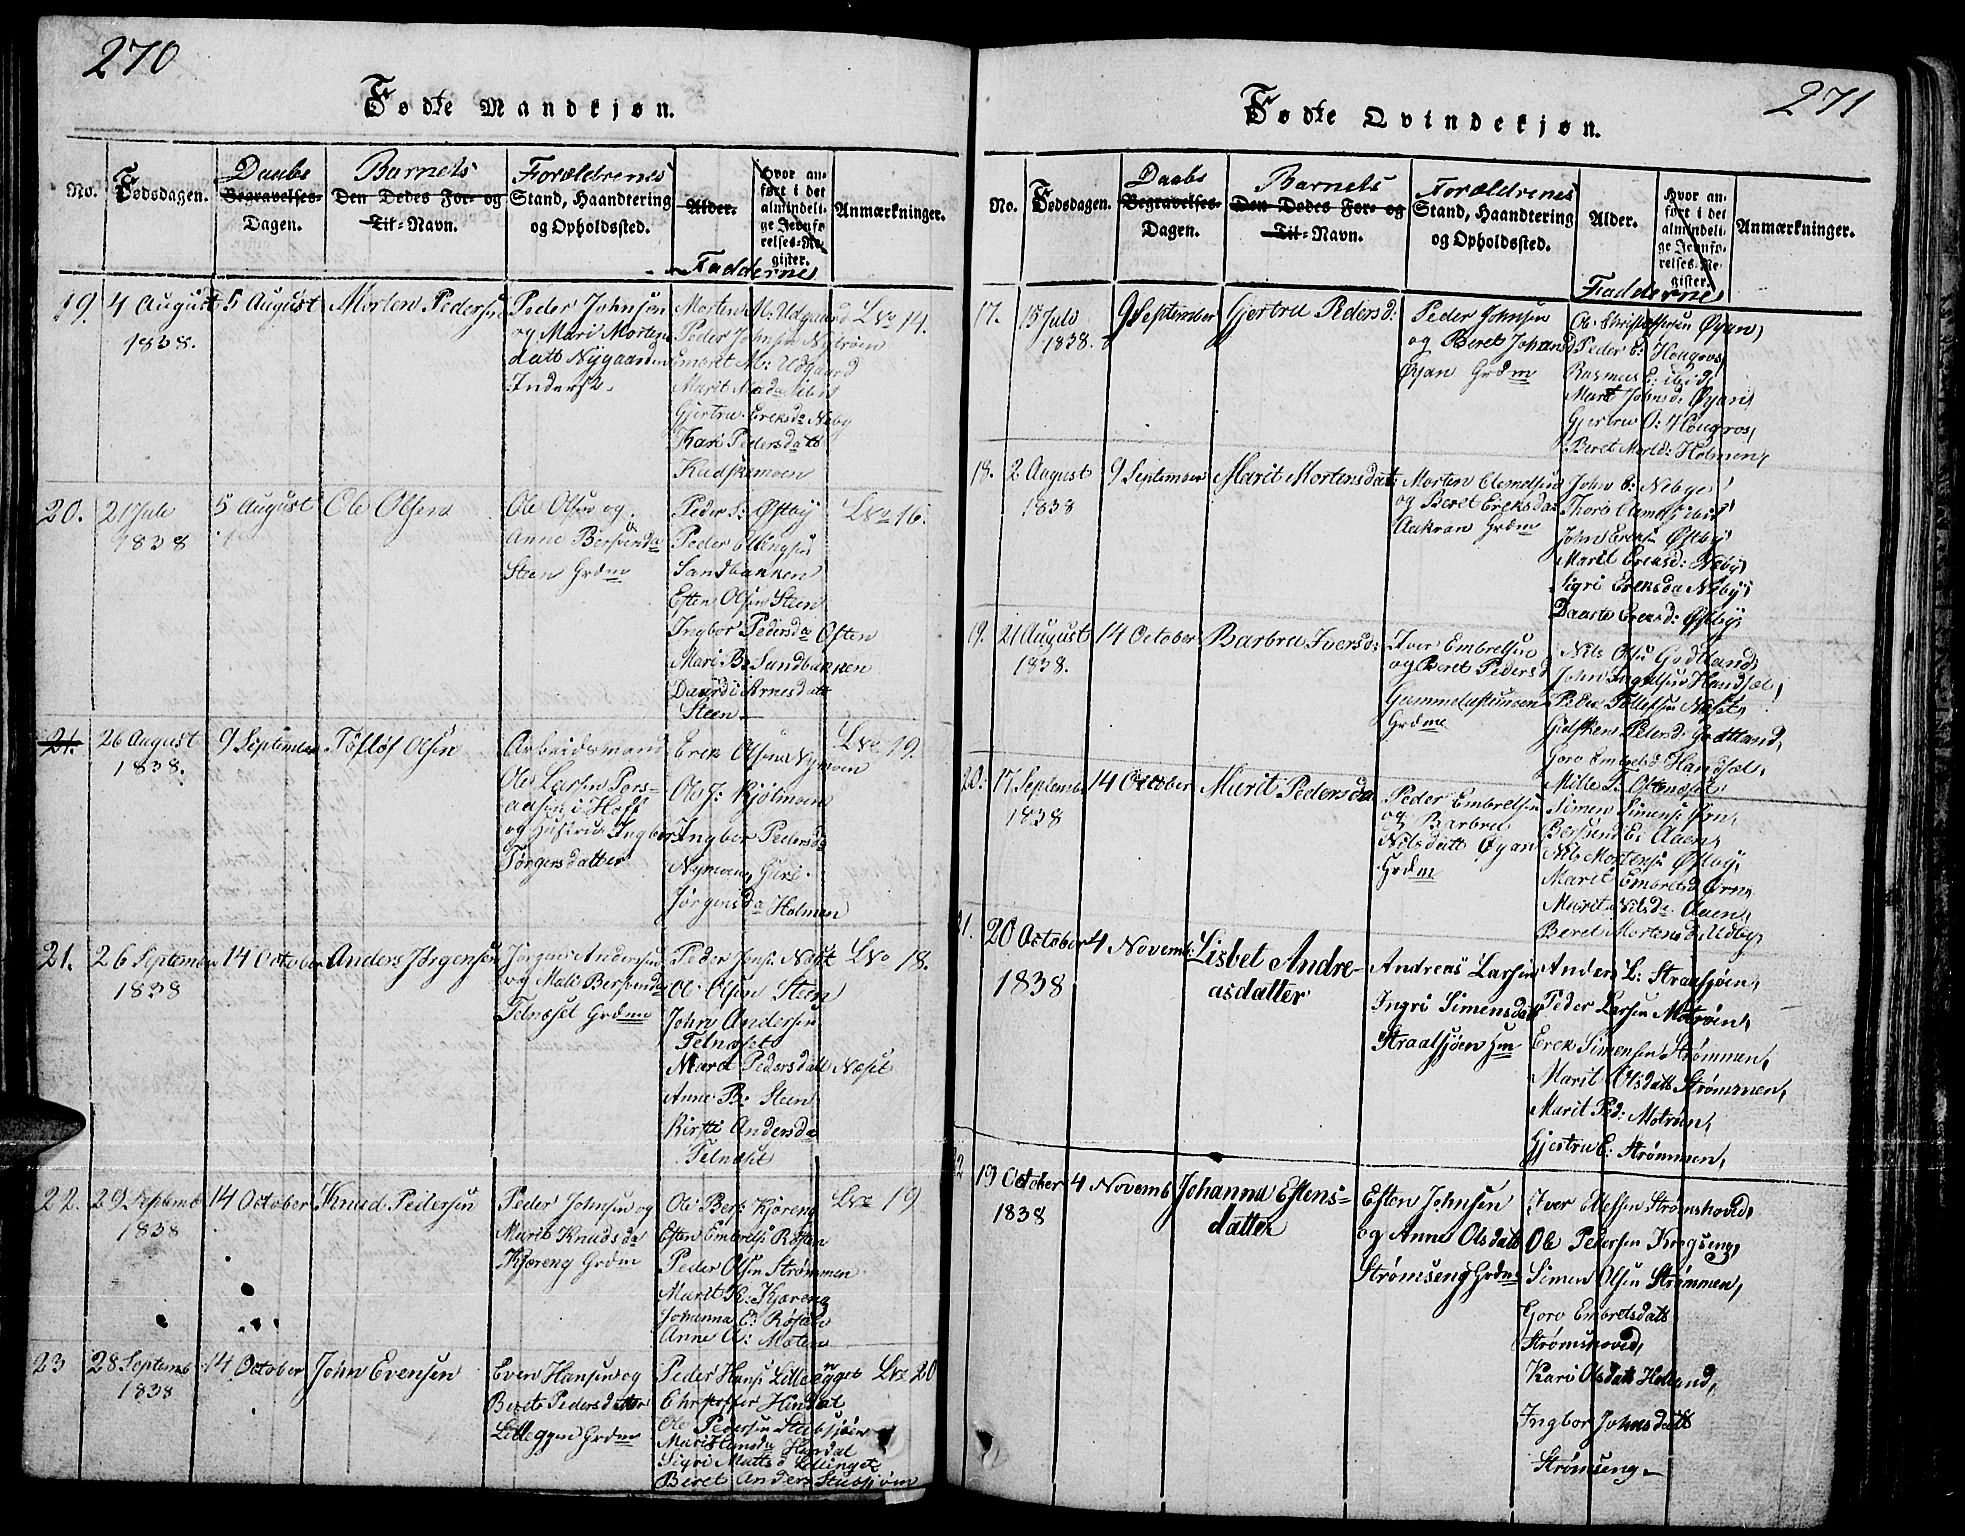 270
Fødte Mandkjøn.
No.
Fødsdagen.
Daabs
Begravelses-
Dagen.
Barnets
Den Dødes For- og
Til-Navn.
Forældrenes
Stand, Haandtering
og Opholdssted.
Alder.
Hvor an-
ført i det
almindeli-
ge Jevnfø-
relses-Re-
gister.
Faddernes
Anmærkninger.
19.
4 August
1838.
5 August
Morten Pedersen
Peder Johnsen
og Mari Mortens
datt Nygaarden
Morten M: Udgaard
Peder Johnsen
Embret M: Udgaard
Gjertru Ereksda Neby
Kari Pedersdatt
Kudskemoen
Lno 14.
20.
21 Juli
1838
5 August
Ole Olsen
Ole Olsen og
Anne Bersvenda
Steen Grdm
Peder S: Østby
Peder Ellingsen
Sandbakken
Esten Olsen Steen
Ingbor Pedersda Østen
Mari B: Sandbakken
Daardi Arnesdatt
Steen
Lno 16.
21.
26 August
1838.
9 September
Tøfløf Olsen
Arbeidsmand
Ole Larsen Pors-
aasen i Hoff
og Hustrue Ingbor
Jørgensdatter
Erek Olsen Nymoen
Ole J: Kjølmoen
Ingbor Pedersda
Nymoen, Guri
Jørgensda Holmen
Lno 19.
21.
26 September
1838
14 October
Anders Jørgensen
Jørgen Andersen
og Mali Bersvenda
Telneset Grdme
Peder Jens: Neset
Ole Olsen Steen
John Andersen
Telneset
Maret Pedersdatt Neset
Anne B: Steen
Kirsti Andersda
Telneset
Lno 18.
22.
29 Septemb
1838
14 October
Knud Pedersen
Peder Johnsen og
Marit Knudsda
Kjæreng Grdm
Ole Bers: Kjøreng
Esten Embrets: Røsten
Peder Olsen Strømmen
Marit K: Kjæreng
Johanna E: Røsten
Anne O: Moten
Lno 19
23
28 Septemb
1838
14 October
John Evensen
Even Hansen og
Beret Pedersdatter
Lilleggen Grdm
Peder Hans: Lilleegget
Christoffer Hindal
Ole Pedersen Stubsjøen
Mari Hansda
Sigri Mattsd Lillinget
Beret Anders Stubsjøen
Lno 20
271
Fødte Qvindekjøn.
No.
Fødsdagen.
Daabs
Begravelses-
Dagen.
Barnets
Den Dødes For- og
Til-Navn.
Forældrenes
Stand, Haandtering
og Opholdssted.
Alder.
Hvor an-
ført i det
almindeli-
ge Jevnfø-
relses-Re-
gister.
Faddernes
Anmærkninger.
17.
15 Juli
1838.
9 September
Gjertru Pedersd:
Peder Johnsen
og Beret Johansd
Øyan Grdm
Ole Christoffersen Øyan,
Peder E: Hougros,
Rasmus E: ibid,
Marit Johnsd: Øyan,
Gjertru O: Hougros,
Beret Mortd: Holmen,
18.
2 August
1838
9 September
Marit Mortensdatt
Morten Clemetsen
og Beret Ereksda
Aakran Grdm
John E: Nebye,
Thore Clemets: ibid
John Ereksen Østby,
Marit Ereksd: Neby,
Sigri Ereksda Neby,
Daarte Ereksd: Østby,
19.
21 August
1838.
14 October
Barbru Iversd:
Iver Embretsen
og Beret Pedersd
Grdme
Nils Olsen Godtland,
John Ingelsen Handsæl,
Peder Tollefsen Neset,
Gidsken Pedersd: Godtland,
Goro Embretsd Handsæl,
Mille T: Osteneset,
20.
17 Septemb
1838
14 October
Marit Pedersda
Peder Embretsen
og Barbru
Nilsdatt Øyan
Grdm
Simen Simens: Ørn,
Bersvend E: Aaen,
Nils Mortens: Østby,
Marit Embretsd Ørn,
Marit Nilsda. Aaen,
Beret Mortensd. Udby,
21.
20 October
1838
4 Novemb:
Lisbet Andre-
asdatter
Andreas Larsen
Ingri Simensdatt
Straalsjøen Hm
Anders L: Straasjøen,
Peder Larsen Motrøen,
Erek Simensen Strømmen,
Marit Olsdatt Strømmen,
Marit Ped: Motrøen,
Gjertru E: Strømmen,
22
19 October
1838
4 Novemb
Johanna Estens-
datter
Esten Johnsen
og Anne Olsdatt
Strømseng Grdme
Iver Ellefsen Strømshoved,
Ole Pedersen Krogseng,
Simen Olsen Strømmen,
Goro Embretsdatt
Strømshoved,
Kari Olsdatt Holland,
Ingbor Johnsdatt
Strømseng